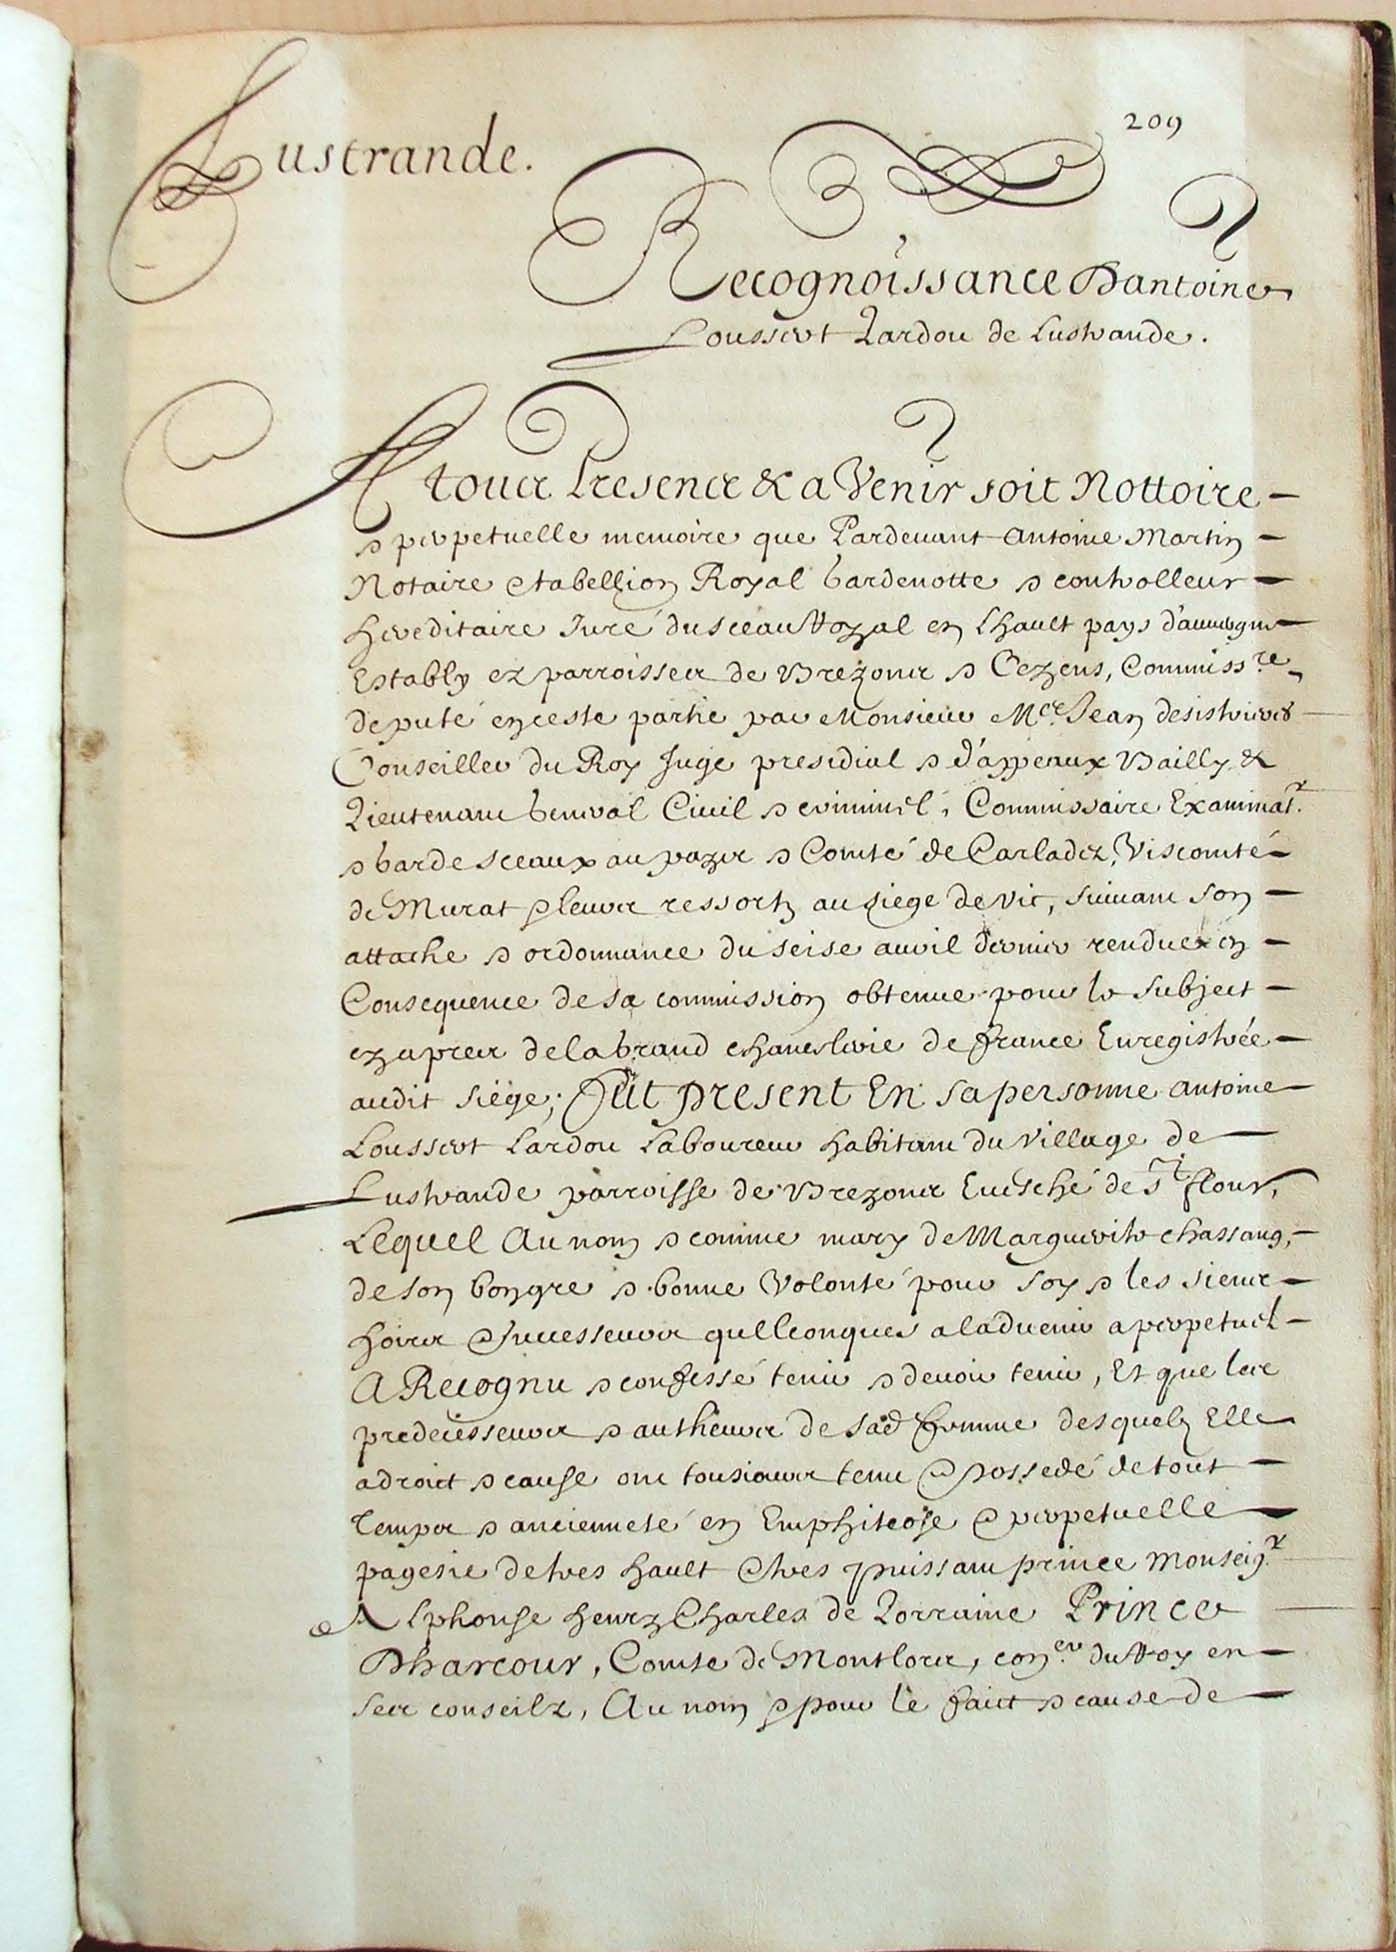 Lustrande.
209
Recognoissance Dantoine
Loussert Lardou de Lustrande.
A tous Presens & a Venir soit Nottoire
& perpetuelle memoire que Pardevant Antoine Martin
Notaire & tabellion Royal Gardenotte & controlleur
hereditaire Juré du sceau Royal en Lhault pays d'auvergne
Estably ez parroisses de Brezons & Cezens, Commissre
deputé en ceste partie par Monsieur Mre Jean desistrieres
Conseiller du Roy Juge presidial & d'appeaux Bailly &
Lieutenant General Civil & criminel, Commissaire Examinatr
& Gardesceaux au pays & Comté de Carladez, Viscomté
de Murat & leurs ressortz au siege de Vic, suivant son
attache & ordonnance du seise avril dernier rendue en
Consequence de sa commission obtenue pour le subject
ez apres de la Grand chancelerie de france Enregistrée
audit siege; Fut present En sa personne Antoine
Loussert Lardou Laboureur habitant du Village de
Lustrande parroisse de Brezons Evesché de St flour,
Lequel Au nom & comme mary de Marguerite chassang,
de son bongre & bonne Volonté pour soy & les siens
hoirs & successeurs quelconques a ladvenir a perpetuel
A Recognu & confessé tenir & devoir tenir, Et que les
predecesseurs & autheurs de sad femme desquelz Elle
a droict & cause ont tousiours tenu & possedé de tout
temps & ancienneté en Emphiteose & perpetuelle
pagesie de tres hault & tres puissant prince Monseigr
Alphonse henry Charles de Lorraine Prince
Dharcour, Comte de Montlors, coner du Roy en
ses conseilz, Au nom & pour le faict & cause de